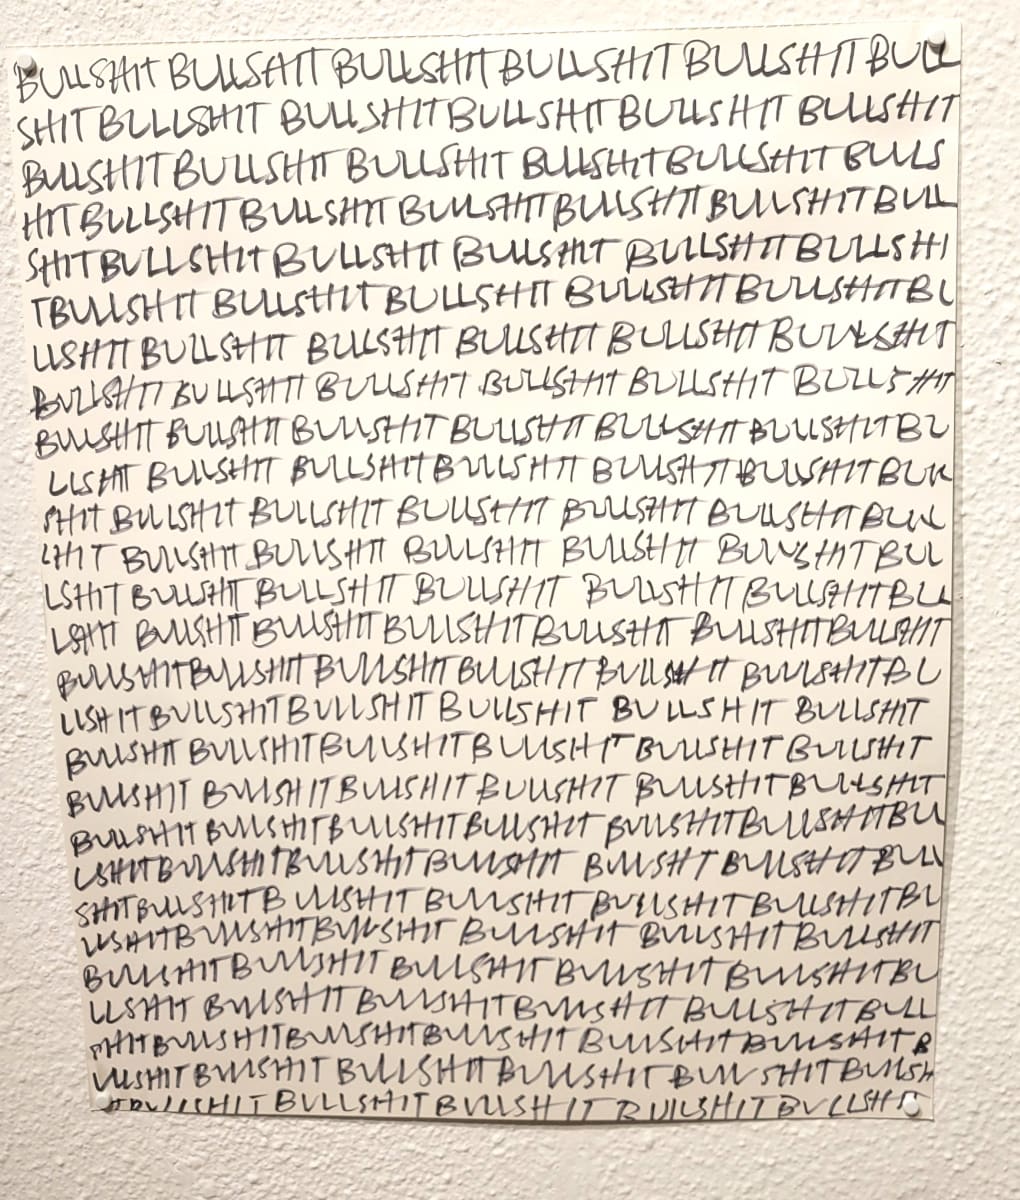 BULLSHIT BULLSHIT BULLSHIT BULLSHIT BULLSHIT BULL
SHIT BULLSHIT BULLSHIT BULLSHIT BULLSHIT BULLSHIT
BULLSHIT BULLSHIT BULLSHIT BULLSHIT BULLSHIT BULLS
HIT BULLSHIT BULLSHIT BULLSHIT BULLSHIT BULLSHIT BULL
SHIT BULLSHIT BULLSHIT BULLSHIT BULLSHIT BULLSHI
T BULLSHIT BULLSHIT BULLSHIT BULLSHIT BULLSHIT BU
LLSHIT BULLSHIT BULLSHIT BULLSHIT BULLSHIT BULLSHIT
BULLSHIT BULLSHIT BULLSHIT BULLSHIT BULLSHIT BULLSHIT
BULLSHIT BULLSHIT BULLSHIT BULLSHIT BULLSHIT BULLSHIT BU
LLSHIT BULLSHIT BULLSHIT BULLSHIT BULLSHIT BULLSHIT BULL
SHIT BULLSHIT BULLSHIT BULLSHIT BULLSHIT BULLSHIT BULL
LHIT BULLSHIT BULLSHIT BULLSHIT BULLSHIT BULLSHIT BUL
LSHIT BULLSHIT BULLSHIT BULLSHIT BULLSHIT BULLSHIT BUL
LSHIT BULLSHIT BULLSHIT BULLSHIT BULLSHIT BULLSHIT BULLSHIT
BULLSHIT BULLSHIT BULLSHIT BULLSHIT BULLSHIT BULLSHIT BU
LLSHIT BULLSHIT BULLSHIT BULLSHIT BULLSHIT BULLSHIT
BULLSHIT BULLSHIT BULLSHIT BULLSHIT BULLSHIT BULLSHIT
BULLSHIT BULLSHIT BULLSHIT BULLSHIT BULLSHIT BULLSHIT
BULLSHIT BULLSHIT BULLSHIT BULLSHIT BULLSHIT BULLSHIT BU
LSHIT BULLSHIT BULLSHIT BULLSHIT BULLSHIT BULLSHIT BULL
SHIT BULLSHIT BULLSHIT BULLSHIT BULLSHIT BULLSHIT BU
LLSHIT BULLSHIT BULLSHIT BULLSHIT BULLSHIT BULLSHIT
BULLSHIT BULLSHIT BULLSHIT BULLSHIT BULLSHIT BU
LLSHIT BULLSHIT BULLSHIT BULLSHIT BULLSHIT BULL
SHIT BULLSHIT BULLSHIT BULLSHIT BULLSHIT BULLSHIT B
ULLSHIT BULLSHIT BULLSHIT BULLSHIT BULLSHIT BULLSH
IT BULLSHIT BULLSHIT BULLSHIT BULLSHIT BULLSHIT